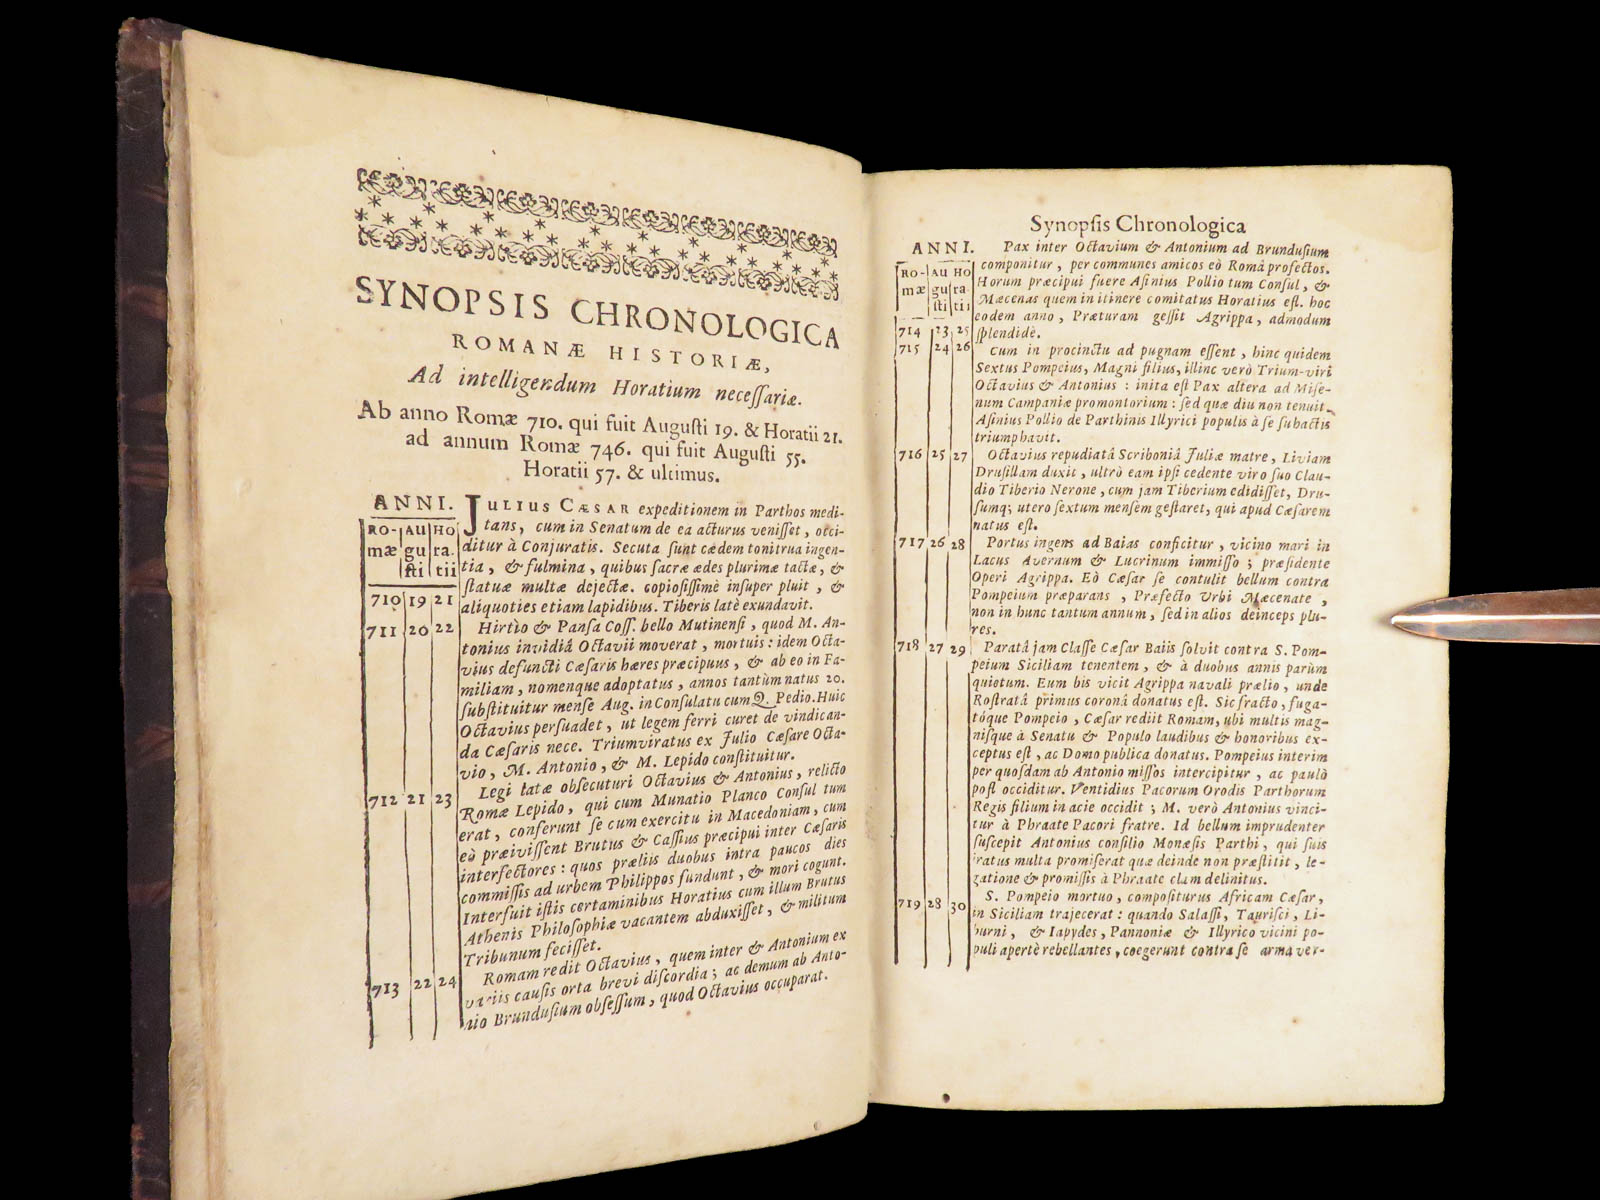 SYNOPSIS CHRONOLOGICA
ROMANÆ HISTORIÆ,
Ad intelligendum Horatium neceſſariæ.
Ab anno Romæ 710. qui fuit Auguſti 19. & Horatii 21.
ad annum Romæ 746. qui fuit Auguſti 55.
Horatii 57. & ultimus.
ANNI.
RO- AU HO
mæ gu ra.
ſti tii
JULIUS CÆSAR expeditionem in Parthos medi-
tans, cum in Senatum de ea acturus veniſſet, occi-
ditur à Conjuratis. Secuta ſunt cædem tonitrua ingen-
tia, & fulmina, quibus ſacræ ædes plurimæ tactæ, &
ſtatuæ multæ dejectæ. copioſiſſimè inſuper pluit, &
710 19 21 aliquoties etiam lapidibus. Tiberis latè exundavit.
711 20 22 Hirtio & Panſa Coſſ. bello Mutinenſi, quod M. An-
tonius invidiâ Octavii moverat, mortuis: idem Octa-
vius defuncti Cæſaris hæres præcipuus, & ab eo in Fa-
miliam, nomenque adoptatus, annos tantùm natus 20.
ſubſtituitur menſe Aug. in Conſulatu cum Q. Pedio. Huic
Octavius perſuadet, ut legem ferri curet de vindican-
da Cæſaris nece. Triumviratus ex Julio Cæſare Octa-
vio, M. Antonio, & M. Lepido conſtituitur.
712 21 23 Legi latæ obſecuturi Octavius & Antonius, relicto
Romæ Lepido, qui cum Munatio Planco Conſul tum
erat, conferunt ſe cum exercitu in Macedoniam, cum
eò præiviſſent Brutus & Caſſius præcipui inter Cæſaris
interfectores: quos præliis duobus intra paucos dies
commiſſis ad urbem Philippos fundunt, & mori cogunt.
Interfuit iſtis certaminibus Horatius cum illum Brutus
Athenis Philoſophiæ vacantem abduxiſſet, & militum
Tribunum feciſſet.
713 22 24 Romam redit Octavius, quem inter & Antonium ex
variis cauſis orta brevi diſcordia; ac demum ab Anto-
nio Brunduſium obſeſſum, quod Octavius occuparat.
Synopſis Chronologica
ANNI.
RO- AU HO
mæ gu ra-
ſti tii
Pax inter Octavium & Antonium ad Brunduſium
componitur, per communes amicos eò Româ profectos.
Horum præcipui fuere Aſinius Pollio tum Conſul, &
Mæcenas quem in itinere comitatus Horatius eſt. hoc
eodem anno, Præturam geſſit Agrippa, admodum
714 23 25 ſplendidè.
715 24 26 Cum in procinctu ad pugnam eſſent, hinc quidem
Sextus Pompeius, Magni filius, illinc verò Trium-viri
Octavius & Antonius: inita eſt Pax altera ad Miſe-
num Campaniæ promontorium: ſed quæ diu non tenuit.
Aſinius Pollio de Parthinis Illyrici populis à ſe ſubactis
triumphavit.
716 25 27 Octavius repudiatâ Scriboniâ Juliæ matre, Liviam
Druſillam duxit, ultrò eam ipſi cedente viro ſuo Clau-
dio Tiberio Nerone, cum jam Tiberium edidiſſet, Dru-
ſumq; utero ſextum menſem geſtaret, qui apud Cæſarem
natus eſt.
717 26 28 Portus ingens ad Baias conficitur, vicino mari in
Lacus Avernum & Lucrinum immiſſo; præſidente
Operi Agrippa. Eò Cæſar ſe contulit bellum contra
Pompeium præparans, Præfecto Urbi Mæcenate,
non in hunc tantum annum, ſed in alios deinceps plu-
res.
718 27 29 Paratâ jam Claſſe Cæſar Baiis ſolvit contra S. Pom-
peium Siciliam tenentem, & à duobus annis parùm
quietum. Eum bis vicit Agrippa navali prælio, unde
Roſtratâ primus coronâ donatus eſt. Sic fracto, fuga-
tóque Pompeio, Cæſar rediit Romam, ubi multis mag-
niſque à Senatu & Populo laudibus & honoribus ex-
ceptus eſt, ac Domo publica donatus. Pompeius interim
per quoſdam ab Antonio miſſos intercipitur, ac paulò
poſt occiditur. Ventidius Pacorum Orodis Parthorum
Regis filium in acie occidit; M. verò Antonius vinci-
tur à Phraate Pacori fratre. Id bellum imprudenter
ſuſcepit Antonius conſilio Monæſis Parthi, qui ſuis
iratus multa promiſerat quæ deinde non præſtitit, le-
gatione & promiſſis à Phraate clam delinitus.
719 28 30 S. Pompeio mortuo, compoſiturus Africam Cæſar,
in Siciliam trajecerat: quando Salaſſi, Tauriſci, Li-
burni, & Iapydes, Pannoniæ & Illyrico vicini po-
puli apertè rebellantes, coegerunt contra ſe arma ver-